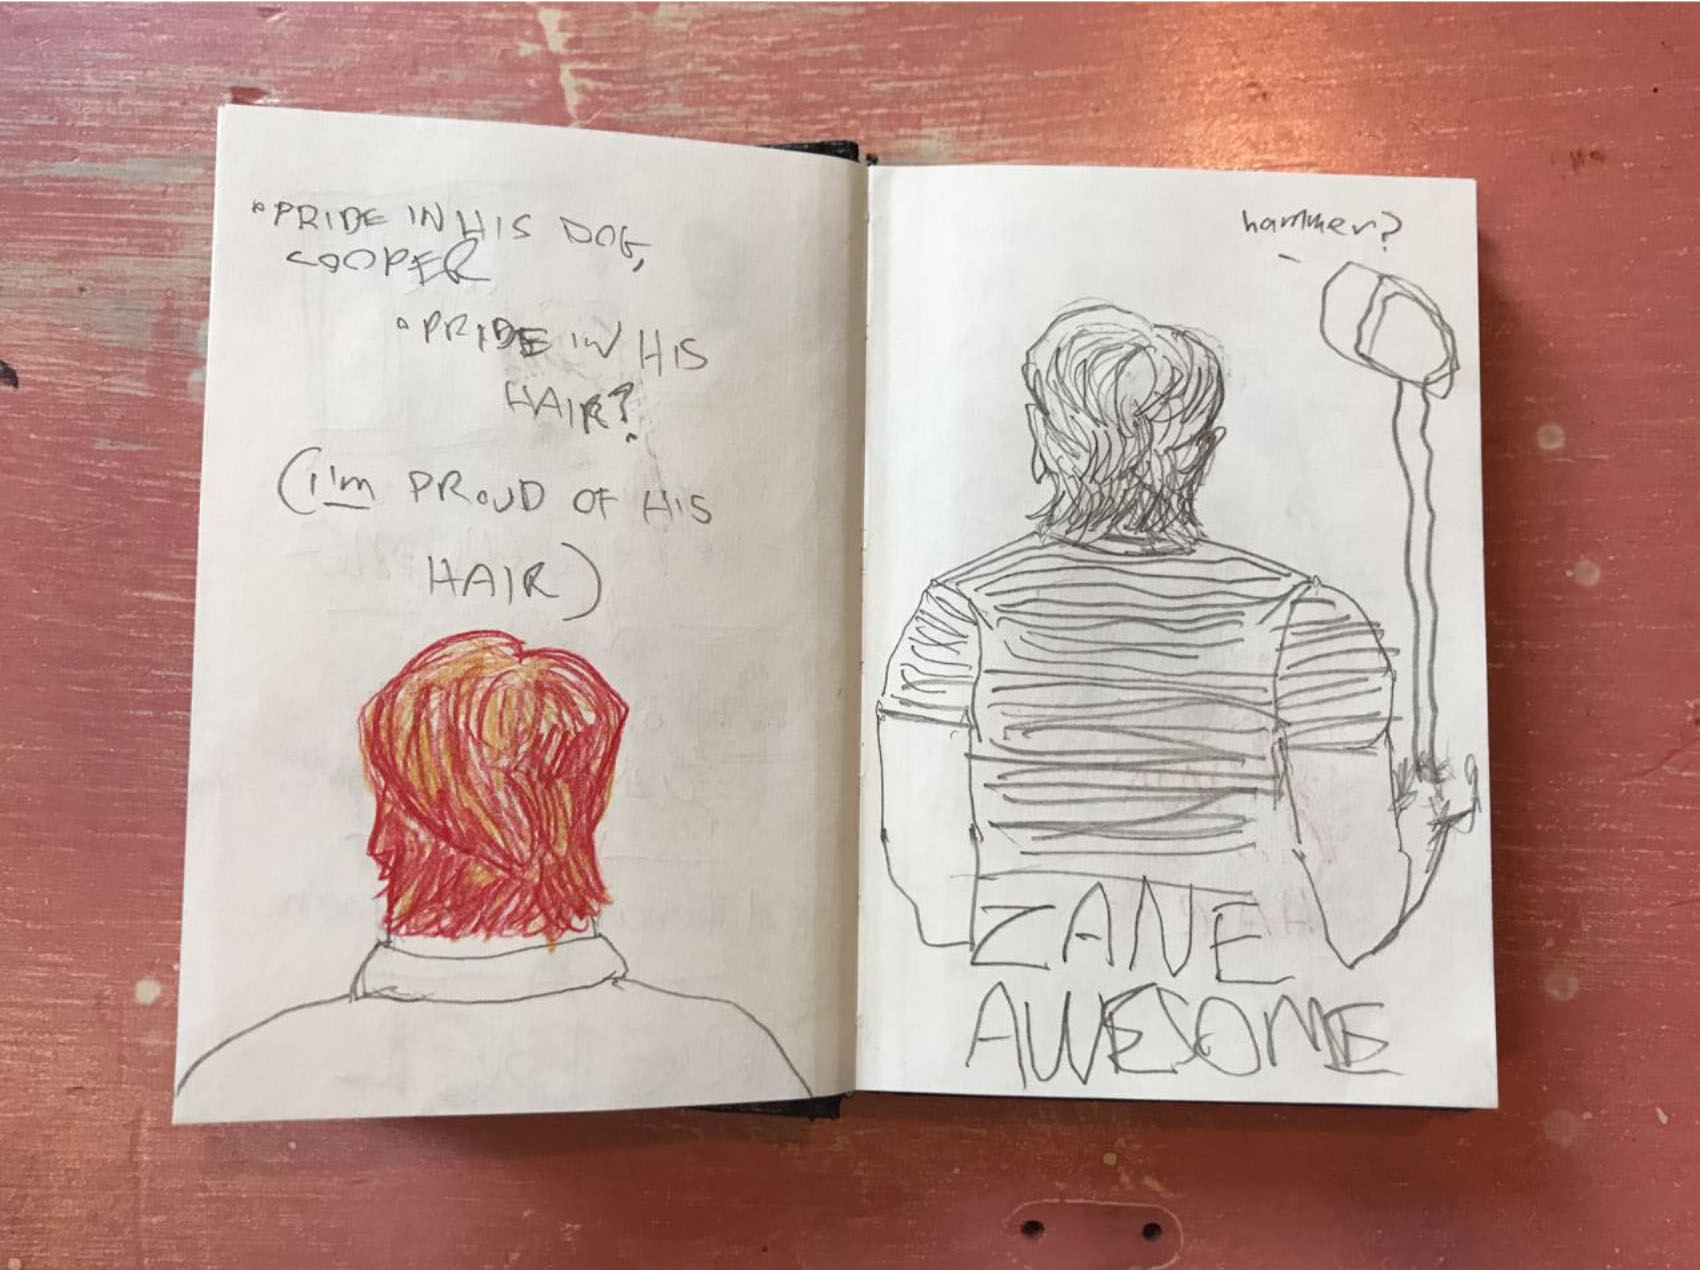 •PRIDE IN HIS DOG,
COOPER
•PRIDE IN HIS
HAIR?
(I'm PROUD OF HIS
HAIR)
hammer?
ZANE
AWESOME